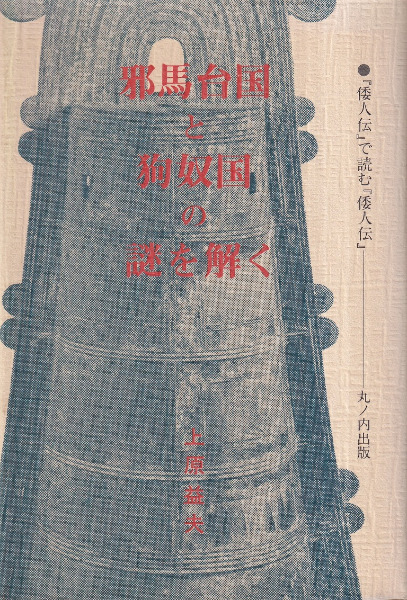 邪馬台国
と
狗奴国
の
謎を解く
●『倭人伝』で読む『倭人伝』
上原益夫
丸ノ内出版